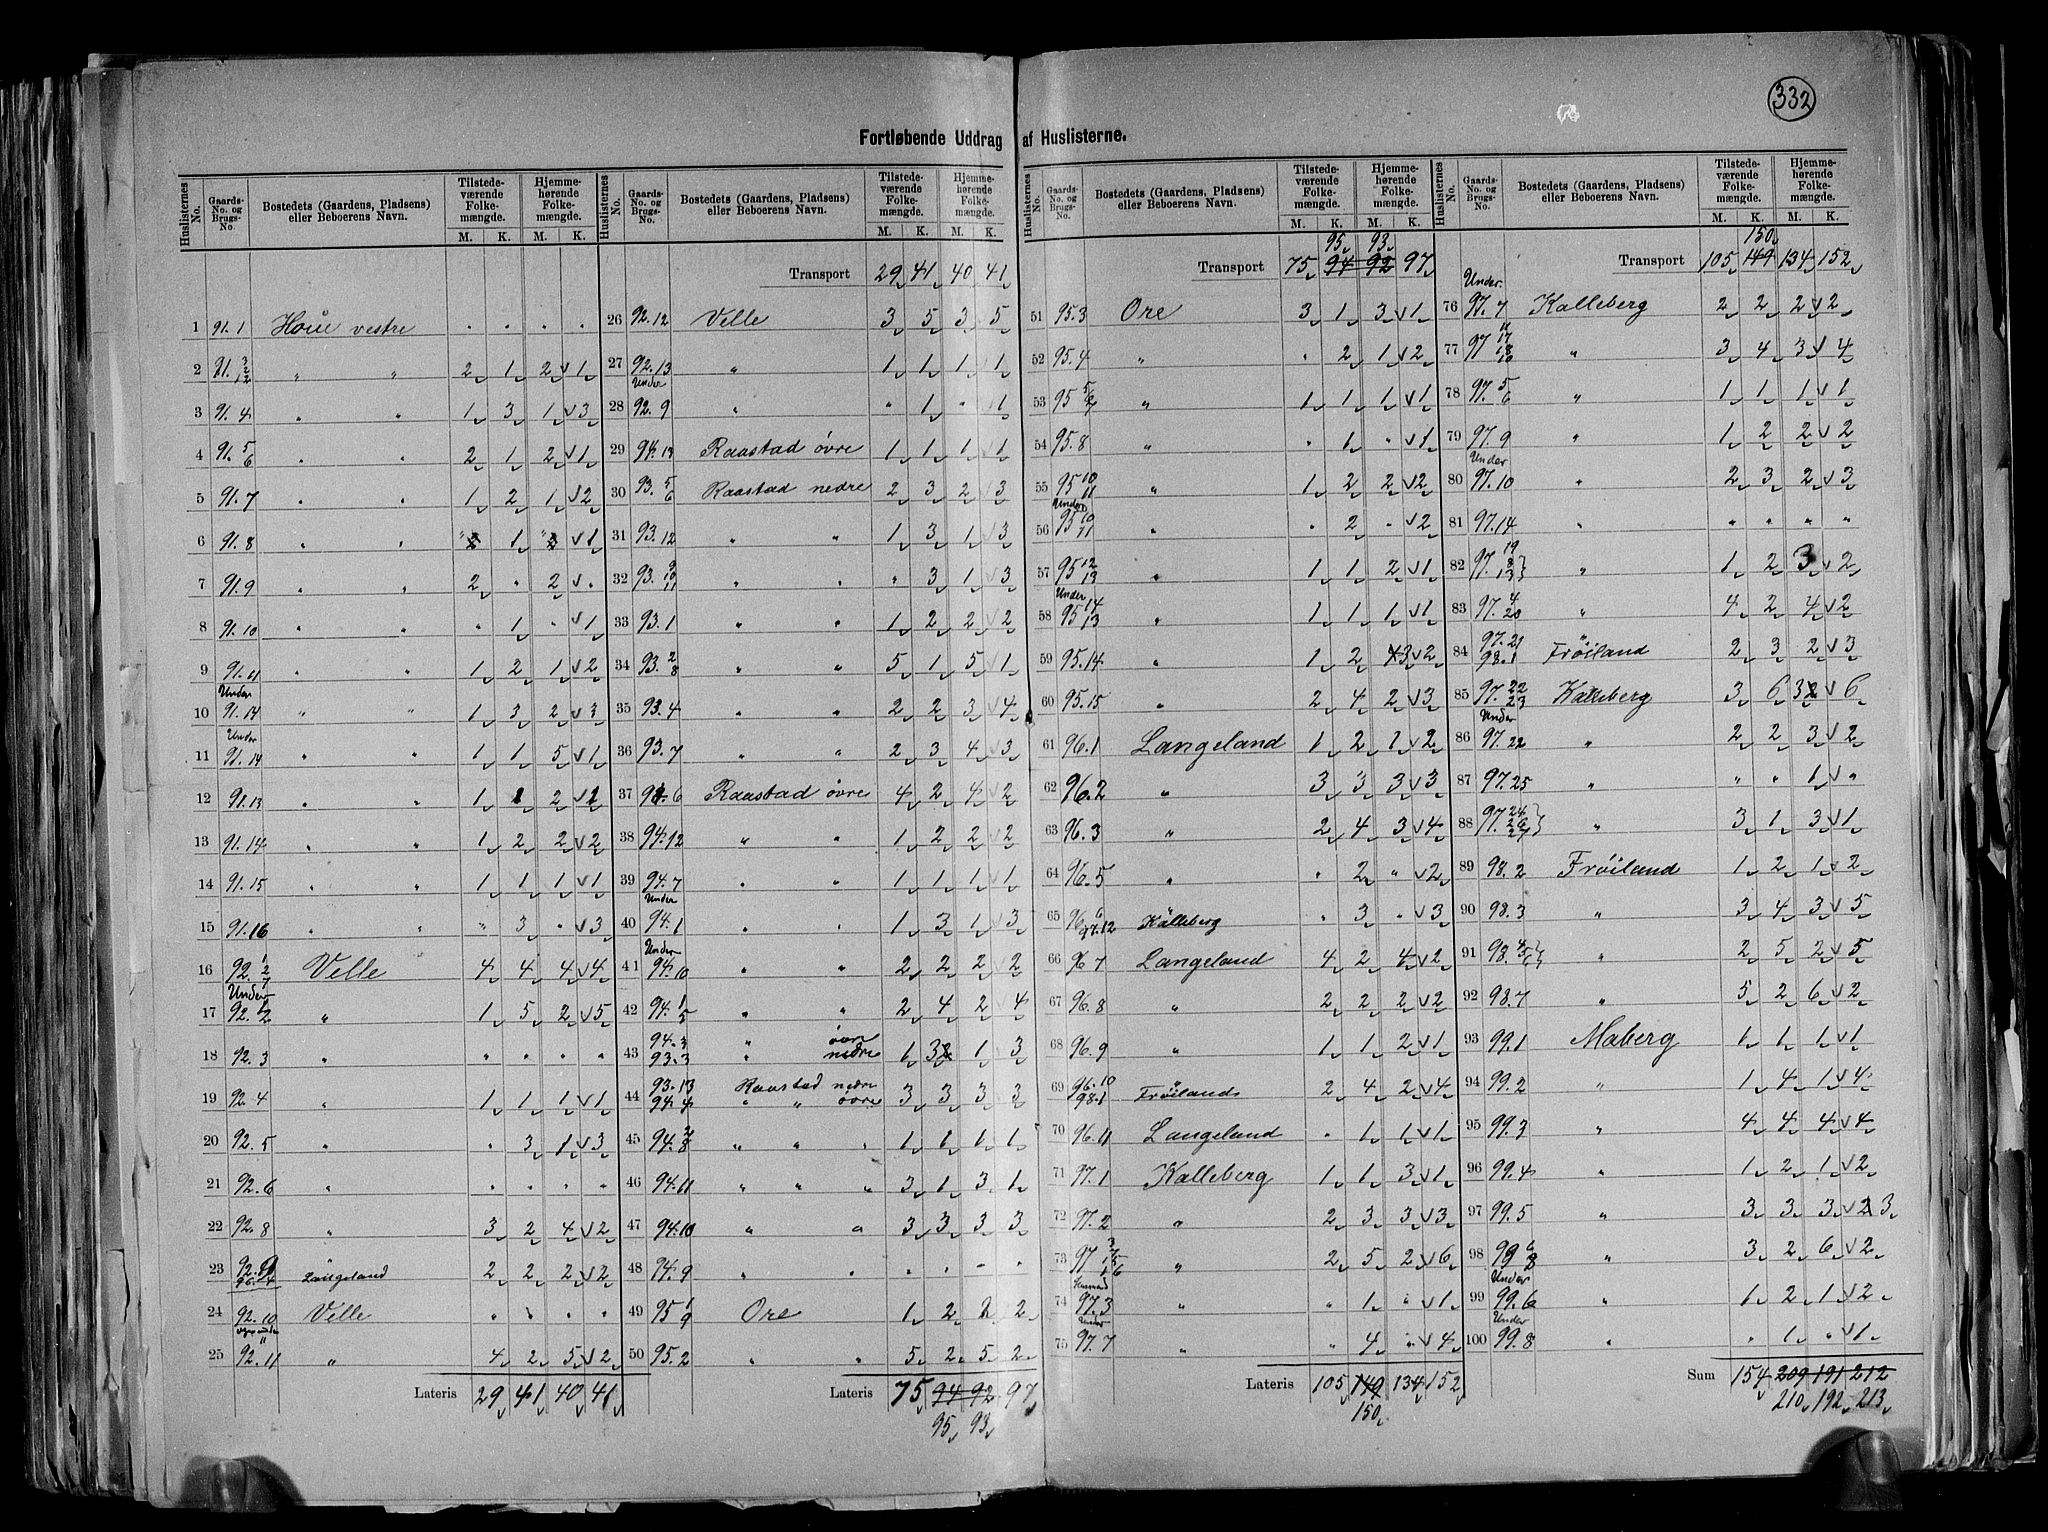 332
Fortløbende Uddrag af Huslisterne.
Huslisternes No. Gaards-No. og Brugs-No. Bostedets (Gaardens, Pladsens) eller Beboerens Navn. Tilstedeværende Folkemængde. M. K. Hjemmehørende Folkemængde. M. K.
1 91.1 Houe vestre " " " "
2 91. " " 2 1 2 1
3 91.4 " " 1 3 1 3
4 91.5/6 " " 2 1 2 1
5 91.7 " " 1 2 1 2
6 91.8 " " " 1 " 1
7 91.9 " " 2 " 2 "
8 91.10 " " " 1 " 1
9 91.11 " " 1 2 1 2
10 Under 91.14 " " 1 3 2 3
11 Under 91.14 " " 1 1 5 1
12 91.13 " " 1 1 2 1
13 91.14 " " 1 2 2 2
14 91.15 " " 1 1 1 1
15 91.16 " " " 3 " 3
16 92.1/2/7 Velle 4 4 4 4
17 Under 92.1/2 " 1 5 2 5
18 92.3 " " " " "
19 92.4 " 1 1 1 1
20 92.5 " " 3 1 3
21 92.6 " " " " "
22 92.8 " 3 2 4 2
23 92.9 96.4 Langeland 2 2 2 2
24 92.10 Velle " " " "
25 92.11 " 4 2 5 2
Lateris 29 41 40 41
Huslisternes No. Gaards-No. og Brugs-No. Bostedets (Gaardens, Pladsens) eller Beboerens Navn. Tilstedeværende Folkemængde. M. K. Hjemmehørende Folkemængde. M. K.
Transport 29 41 40 41
26 92.12 Velle 3 5 3 5
27 92.13 " 1 1 1 1
28 Under 92.9 " " 1 " 1
29 94.13 Raastad øvre 1 1 1 1
30 93.5/6 Raastad nedre 2 3 2 3
31 93.12 " " 1 3 1 3
32 93.9/10/11 " " " 3 1 3
33 93.1 " " 1 2 2 2
34 93.2/8 " " 5 1 5 1
35 93.4 " " 2 2 3 4
36 93.7 " " 2 3 4 3
37 94.6 Raastad øvre 4 2 4 2
38 94.12 " " 1 2 2 2
39 94.7 " " 1 1 1 1
40 Under 94.1 " " 1 3 1 3
41 Under 94.10 " " 2 2 2 2
42 94.1/5 " " 2 4 2 4
43 94.3 93.3 " øvre " nedre 1 3 1 3
44 93.13 94.4 Raastad nedre " " øvre 3 3 3 3
45 94.2/8 " " " 1 1 1 1
46 94.11 " " " 3 1 3 1
47 94.10 " " 3 3 3 3
48 94.9 " " " " " "
49 95.1/9 Ore 1 2 2 2
50 95.2 " " 5 2 5 2
Lateris 75 94 92 97
95 93
Huslisternes No. Gaards-No. og Brugs-No. Bostedets (Gaardens, Pladsens) eller Beboerens Navn. Tilstedeværende Folkemængde. M. K. Hjemmehørende Folkemængde. M. K.
95 93
Transport 75 94 92 97
51 95.3 Ore 3 1 3 1
52 95.4 " " 2 1 2
53 95 5/6/7 " 1 1 1 1
54 95.8 " " 1 " 1
55 95 10/11 " 1 2 2 2
56 Under 95 10/11 " " 2 " 2
57 95 12/13 " 1 1 2 1
58 Under 95 14/13 " 1 1 1 1
59 95.14 " 1 2 3 2
60 95.15 " 2 4 2 3
61 96.1 Langeland 1 2 1 2
62 96.2 " 3 3 3 3
63 96.3 " 2 4 3 4
64 96.5 " " 2 " 2
65 96.6 97.12 " Kalleberg " 3 " 3
66 96.7 Langeland 4 2 4 2
67 96.8 " 2 2 2 2
68 96.9 " 1 1 2 1
69 96.10 98.1 " Frøilands 2 4 2 4
70 96.11 Langeland " 1 1 1
71 97.1 Kalleberg 1 1 3 1
72 97.2 " 2 3 3 3
73 97 3/15/16 " 2 5 2 6
74 97.3 " " 1 " 1
75 Under 97.7 " " 4 " 4
Lateris 105 149 134 152
150
Huslisternes No. Gaards-No. og Brugs-No. Bostedets (Gaardens, Pladsens) eller Beboerens Navn. Tilstedeværende Folkemængde. M. K. Hjemmehørende Folkemængde. M. K.
150
Transport 105 149 134 152
76 Under 97.7 Kalleberg 2 2 2 2
77 97 " 3 4 3 4
78 97.5/6 " 1 1 1 1
79 97.9 " 1 2 2 2
80 Under 97.10 " 2 3 2 3
81 97.14 " " " " "
82 97.19/8/13 " 1 2 3 2
83 97.4/20 " 4 2 4 2
84 97.21 98.1 " Frøiland 2 3 2 3
85 97.22/23 Kalleberg 3 6 3 6
86 Under 97.22 " 2 2 3 2
87 97.25 " " " 1 "
88 97.24/26/27 " 3 1 3 1
89 98.2 Frøiland 1 2 1 2
90 98.3 " 3 4 3 5
91 98.4/5/6 " 2 5 2 5
92 98.7 " 5 2 6 2
93 99.1 Maberg 1 1 1 1
94 99.2 " 1 4 1 4
95 99.3 " 4 4 4 4
96 99.4 " 1 2 1 2
97 99.5 " 3 3 3 2 3
98 99 6/8 " 3 2 6 2
99 Under 99.6 " 1 2 1 2
100 Under 99.8 " " 1 " 1
Sum 154 209 191 212
210 192 213